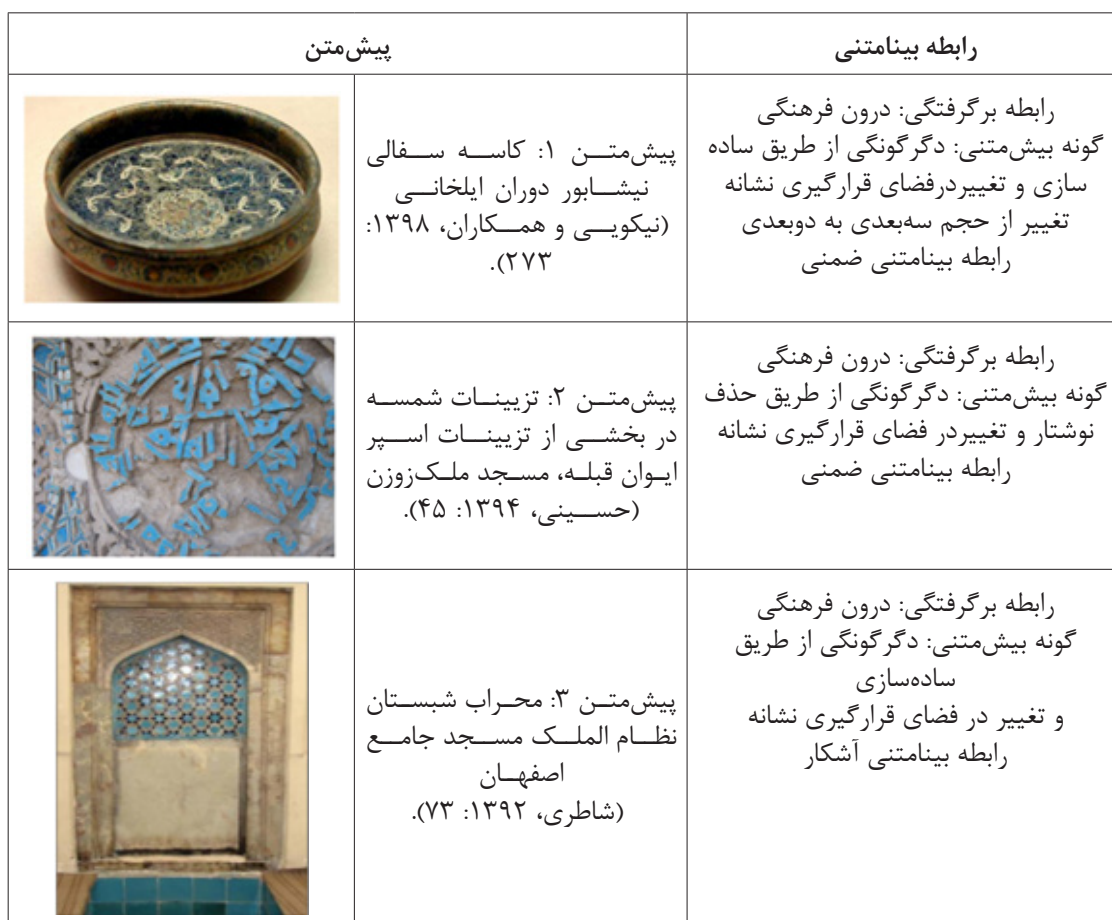 رابطه بینامتنی
پیش‌متن
رابطه برگرفتگی: درون فرهنگی
گونه بیش‌متنی: دگرگونگی از طریق ساده
سازی و تغییردرفضای قرارگیری نشانه
تغییر از حجم سه‌بعدی به دوبعدی
رابطه بینامتنی ضمنی
پیش‌متن ۱: کاسه سفالی
نیشابور دوران ایلخانی
(نیکویی و همکاران، ۱۳۹۸:
۲۷۳).
رابطه برگرفتگی: درون فرهنگی
گونه بیش‌متنی: دگرگونگی از طریق حذف
نوشتار و تغییردر فضای قرارگیری نشانه
رابطه بینامتنی ضمنی
پیش‌متن ۲: تزیینات شمسه
در بخشی از تزیینات اسپر
ایوان قبله، مسجد ملک‌زوزن
(حسینی، ۱۳۹۴: ۴۵).
رابطه برگرفتگی: درون فرهنگی
گونه بیش‌متنی: دگرگونگی از طریق
ساده‌سازی
و تغییر در فضای قرارگیری نشانه
رابطه بینامتنی آشکار
پیش‌متن ۳: محراب شبستان
نظام الملک مسجد جامع
اصفهان
(شاطری، ۱۳۹۲: ۷۳).